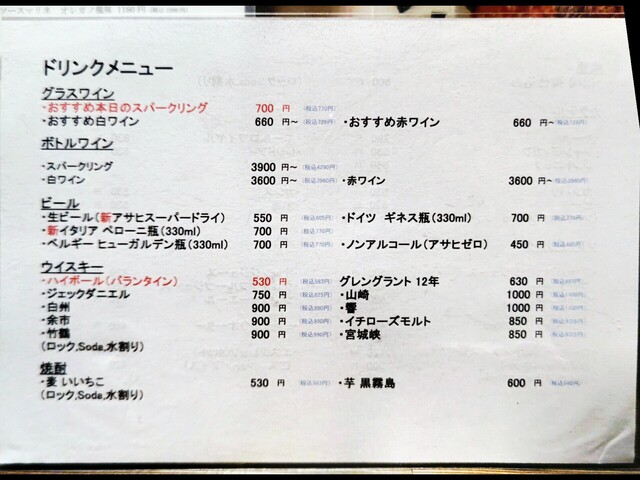 ドリンクメニュー
グラスワイン
・おすすめ本日のスパークリング 700 円 (税込770円)
・おすすめ白ワイン 660 円～ ・おすすめ赤ワイン 660 円～
ボトルワイン
・スパークリング 3900 円～ (税込4290円)
・白ワイン 3600 円～ (税込3960円) ・赤ワイン 3600 円～ (税込3960円)
ビール
・生ビール(新アサヒスーパードライ) 550 円 (税込605円) ・ドイツ ギネス瓶(330ml) 700 円 (税込770円)
・新イタリア ペローニ瓶(330ml) 700 円 (税込770円)
・ベルギー ヒューガルデン瓶(330ml) 700 円 (税込770円) ・ノンアルコール(アサヒゼロ) 450 円
ウイスキー
・ハイボール(バランタイン) 530 円 (税込583円) グレングラント 12年 630 円
・ジェックダニエル 750 円 (税込825円) ・山崎 1000 円
・白州 900 円 (税込990円) ・響 1000 円
・余市 900 円 (税込990円) ・イチローズモルト 850 円
・竹鶴 900 円 (税込990円) ・宮城峡 850 円
(ロック,Soda,水割り)
焼酎
・麦 いいちこ 530 円 ・芋 黒霧島 600 円
(ロック,Soda,水割り)